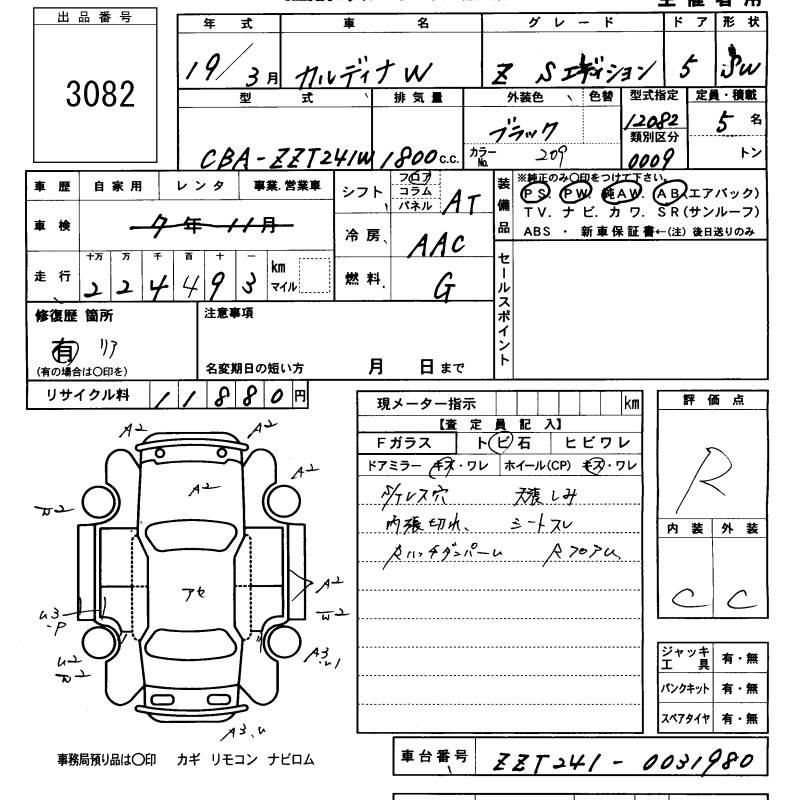 出品番号
3082
年式 車名 グレード ドア 形状
19/3月 カルディナW Z Sエディション 5 SW
型式 排気量 外装色 色替 型式指定 定員・積載
CBA-ZZT241W 1800c.c. ブラック 12082 5名
カラーNo. 209 類別区分 0009 トン
車歴 自家用 レンタ 事業.営業車
シフト フロア コラム パネル AT
装備品 ※純正のみ〇印をつけて下さい。
PS. PW. 純AW. AB(エアバック)
TV. ナビ. カワ. SR(サンルーフ)
ABS ・ 新車保証書←(注) 後日送りのみ
車検 7年11月
冷房 AAC
走行 十万 万 千 百 十 一 km マイル
224493
燃料 G
セールスポイント
修復歴 箇所
有 リア
(有の場合は〇印を)
注意事項
名変期日の短い方 月 日まで
リサイクル料 11880円
現メーター指示 km
【査定員記入】
Fガラス トビ石 ヒビワレ
ドアミラー キズ・ワレ ホイール(CP) キズ・ワレ
S/テレス穴 天張しみ
内張切れ、 シートスレ
Rハッチダンパーム RフロアU
評価点
R
内装 外装
C C
A2 A2
A2 A2
W2 W2
アセ
A2
W2
U3-P
U2
W2
A3.U1
A3.U
ジャッキ工具 有・無
パンクキット 有・無
スペアタイヤ 有・無
事務局預り品は〇印 カギ リモコン ナビロム
車台番号 ZZT241-0031980